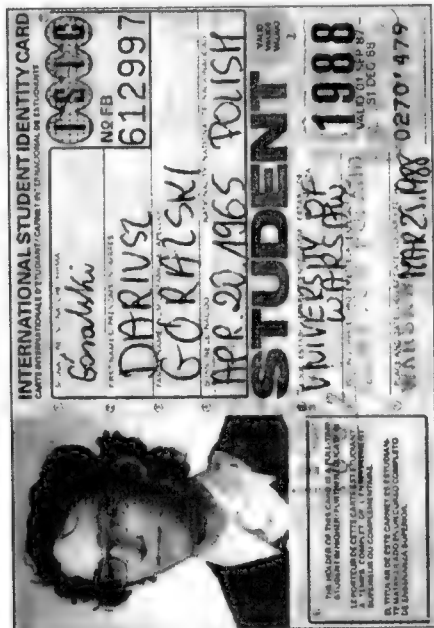 INTERNATIONAL STUDENT IDENTITY CARD
CARTE INTERNATIONALE D'ETUDIANT/CARNET INTERNACIONAL DE ESTUDIANTE
ISIC
Nº FB
612997
Goralski
DARIUSZ
GORALSKI
APR. 20 1965 POLISH
STUDENT
VALID
VALIDO
1988
VALID 01 SEP 87-
31 DEC 88
UNIVERSITY OF
WARSAW
MAR 25, 1988 0270'479
THE HOLDER OF THIS CARD IS A FULL-TIME
STUDENT IN HIGHER/FURTHER EDUCATION
LE PORTEUR DE CETTE CARTE EST ETUDIANT
A TEMPS COMPLET DE L'ENSEIGNEMENT
SUPERIEUR OU COMPLEMENTAIRE
EL TITULAR DE ESTE CARNET ES ESTUDIAN-
TE MATRICULADO EN UN CURSO COMPLETO
DE ENSEÑANZA SUPERIOR.